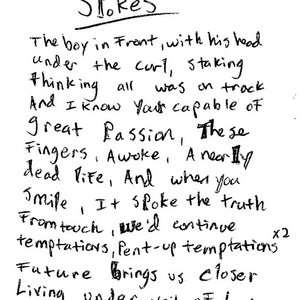 Spokes
The boy in Front, with his head
under the curl, staking
thinking all was on track
And I know your capable of
great Passion, These
Fingers, Awoke, A nearly
dead life, And when you
Smile, It spoke the truth
From touch, we'd continue
temptations, Pent-up temptations x2
Future Brings us closer
Living under veil of